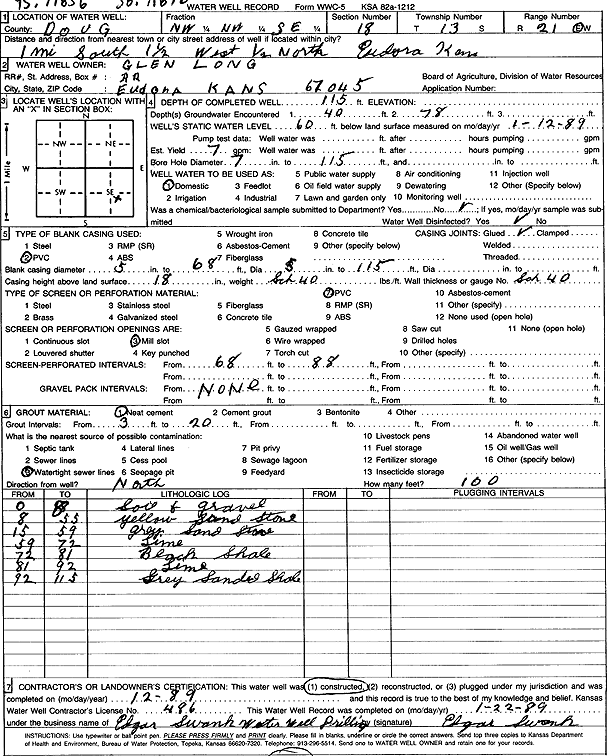 WATER WELL RECORD Form WWC-5 KSA 82a-1212
1 LOCATION OF WATER WELL: Fraction Section Number Township Number Range Number
County: DOUG NW ¼ NW ¼ SE ¼ 18 T 13 S R 21 E/W
Distance and direction from nearest town or city street address of well if located within city?
1 mi South 1½ West ½ North Eudora Kans
2 WATER WELL OWNER: GLEN LONG
RR#, St. Address, Box # : RR Board of Agriculture, Division of Water Resources
City, State, ZIP Code : Eudora KANS 67045 Application Number:
3 LOCATE WELL'S LOCATION WITH AN "X" IN SECTION BOX:
N
NW NE
W E
SW SE
X
S
1 Mile
4 DEPTH OF COMPLETED WELL 115 ft. ELEVATION:
Depth(s) Groundwater Encountered 1. 40 ft. 2. 78 ft. 3. ft.
WELL'S STATIC WATER LEVEL 60 ft. below land surface measured on mo/day/yr 1-12-89
Pump test data: Well water was ft. after hours pumping gpm
Est. Yield 7 gpm: Well water was ft. after hours pumping gpm
Bore Hole Diameter 7 in. to 115 ft., and in. to ft.
WELL WATER TO BE USED AS: 5 Public water supply 8 Air conditioning 11 Injection well
1 Domestic 3 Feedlot 6 Oil field water supply 9 Dewatering 12 Other (Specify below)
2 Irrigation 4 Industrial 7 Lawn and garden only 10 Monitoring well
Was a chemical/bacteriological sample submitted to Department? Yes No ✓; If yes, mo/day/yr sample was submitted Water Well Disinfected? Yes ✓ No
5 TYPE OF BLANK CASING USED: 5 Wrought iron 8 Concrete tile CASING JOINTS: Glued ✓ Clamped
1 Steel 3 RMP (SR) 6 Asbestos-Cement 9 Other (specify below) Welded
2 PVC 4 ABS 7 Fiberglass Threaded
Blank casing diameter 5 in. to 68 ft., Dia 5 in. to 115 ft., Dia in. to ft.
Casing height above land surface 18 in., weight Sch 40 lbs./ft. Wall thickness or gauge No. Sch 40
TYPE OF SCREEN OR PERFORATION MATERIAL: 7 PVC 10 Asbestos-cement
1 Steel 3 Stainless steel 5 Fiberglass 8 RMP (SR) 11 Other (specify)
2 Brass 4 Galvanized steel 6 Concrete tile 9 ABS 12 None used (open hole)
SCREEN OR PERFORATION OPENINGS ARE: 5 Gauzed wrapped 8 Saw cut 11 None (open hole)
1 Continuous slot 3 Mill slot 6 Wire wrapped 9 Drilled holes
2 Louvered shutter 4 Key punched 7 Torch cut 10 Other (specify)
SCREEN-PERFORATED INTERVALS: From 68 ft. to 88 ft., From ft. to ft.
From ft. to ft., From ft. to ft.
GRAVEL PACK INTERVALS: From NONE ft. to ft., From ft. to ft.
From ft. to ft., From ft. to ft.
6 GROUT MATERIAL: 1 Neat cement 2 Cement grout 3 Bentonite 4 Other
Grout Intervals: From 3 ft. to 20 ft., From ft. to ft., From ft. to ft.
What is the nearest source of possible contamination: 10 Livestock pens 14 Abandoned water well
1 Septic tank 4 Lateral lines 7 Pit privy 11 Fuel storage 15 Oil well/Gas well
2 Sewer lines 5 Cess pool 8 Sewage lagoon 12 Fertilizer storage 16 Other (specify below)
3 Watertight sewer lines 6 Seepage pit 9 Feedyard 13 Insecticide storage
Direction from well? North How many feet? 100
FROM TO LITHOLOGIC LOG FROM TO PLUGGING INTERVALS
0 8 Soil & gravel
8 55 yellow Sand Stone
15 59 grey Sand Stone
59 72 Lime
72 81 Black Shale
81 92 Lime
92 115 Grey Sanded Shale
7 CONTRACTOR'S OR LANDOWNER'S CERTIFICATION: This water well was (1) constructed, (2) reconstructed, or (3) plugged under my jurisdiction and was
completed on (mo/day/year) 12-89 and this record is true to the best of my knowledge and belief. Kansas
Water Well Contractor's License No. 486 This Water Well Record was completed on (mo/day/yr) 1-22-89
under the business name of Edgar Swank Water Well Drilling by (signature) Edgar Swank
INSTRUCTIONS: Use typewriter or ball point pen. PLEASE PRESS FIRMLY and PRINT clearly. Please fill in blanks, underline or circle the correct answers. Send top three copies to Kansas Department
of Health and Environment, Bureau of Water Protection, Topeka, Kansas 66620-7320. Telephone: 913-296-5514. Send one to WATER WELL OWNER and retain one for your records.